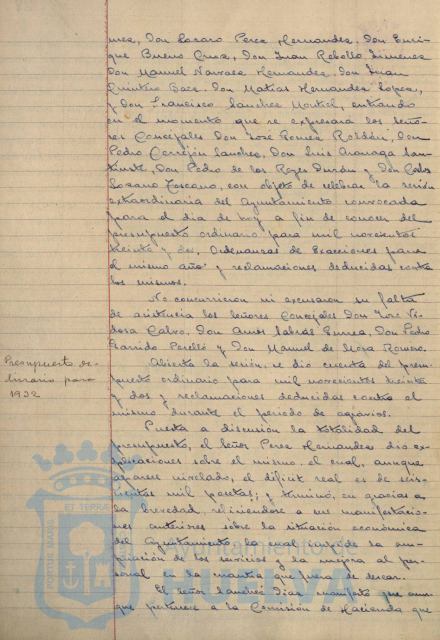 nez, Don Lozaro Perez Hernandez, Don Enri-
que Bueno Cruz, Don Juan Rebollo Jimenez
Don Manuel Narvaez Hernandez, Don Juan
Quintero Baez, Don Matias Hernandez Lopez,
y Don Francisco Sanchez Montiel, entrando
en el momento que se expresará los Seño-
res Concejales Don José Gomez Roldán, Don
Pedro Cerrejón Sanchez, Don Luis San-
Don Pedro de los Reyes Durán y Don
Lozano Toscano, con objeto de celebrar la sesión
extraordinaria del Ayuntamiento convocada
para el dia de hoy a fin de conocer del
presupuesto ordinario para mil novecientos
treinta y dos, Ordenanzas de Exacciones para
el mismo año y reclamaciones deducidas contra
los mismos.
No concurrieron ni excusaron su falta
de asistencia los señores Concejales Don José
Calvo, Don Amos Don Pedro
Garrido Perelló y Don Manuel de Mora Romero.
Presupuesto or-
dinario para
1932
Abierta la sesión, se dio cuenta del presu-
puesto ordinario para mil novecientos treinta
y dos y reclamaciones deducidas contra el
mismo durante el periodo de agravios.
Puesta a discusión la totalidad del
presupuesto, el señor Perez Hernandez dio ex-
plicaciones sobre el mismo, el cual, aunque
aparece nivelado, el déficit real es de seis-
cientas mil pesetas; y terminó, en gracia a
la brevedad, refiriendose a sus manifestacio-
nes anteriores sobre la situación económica
del Ayuntamiento la cual impide la am-
pliación de los servicios y la mejora al per-
sonal en la cuantia que fuera de desear.
El señor Sanchez Diaz manifestó que aun-
que pertenece a la Comisión de Hacienda que
PORTUS MARIS
ET TERRAE
Ayuntamiento de
HUELVA